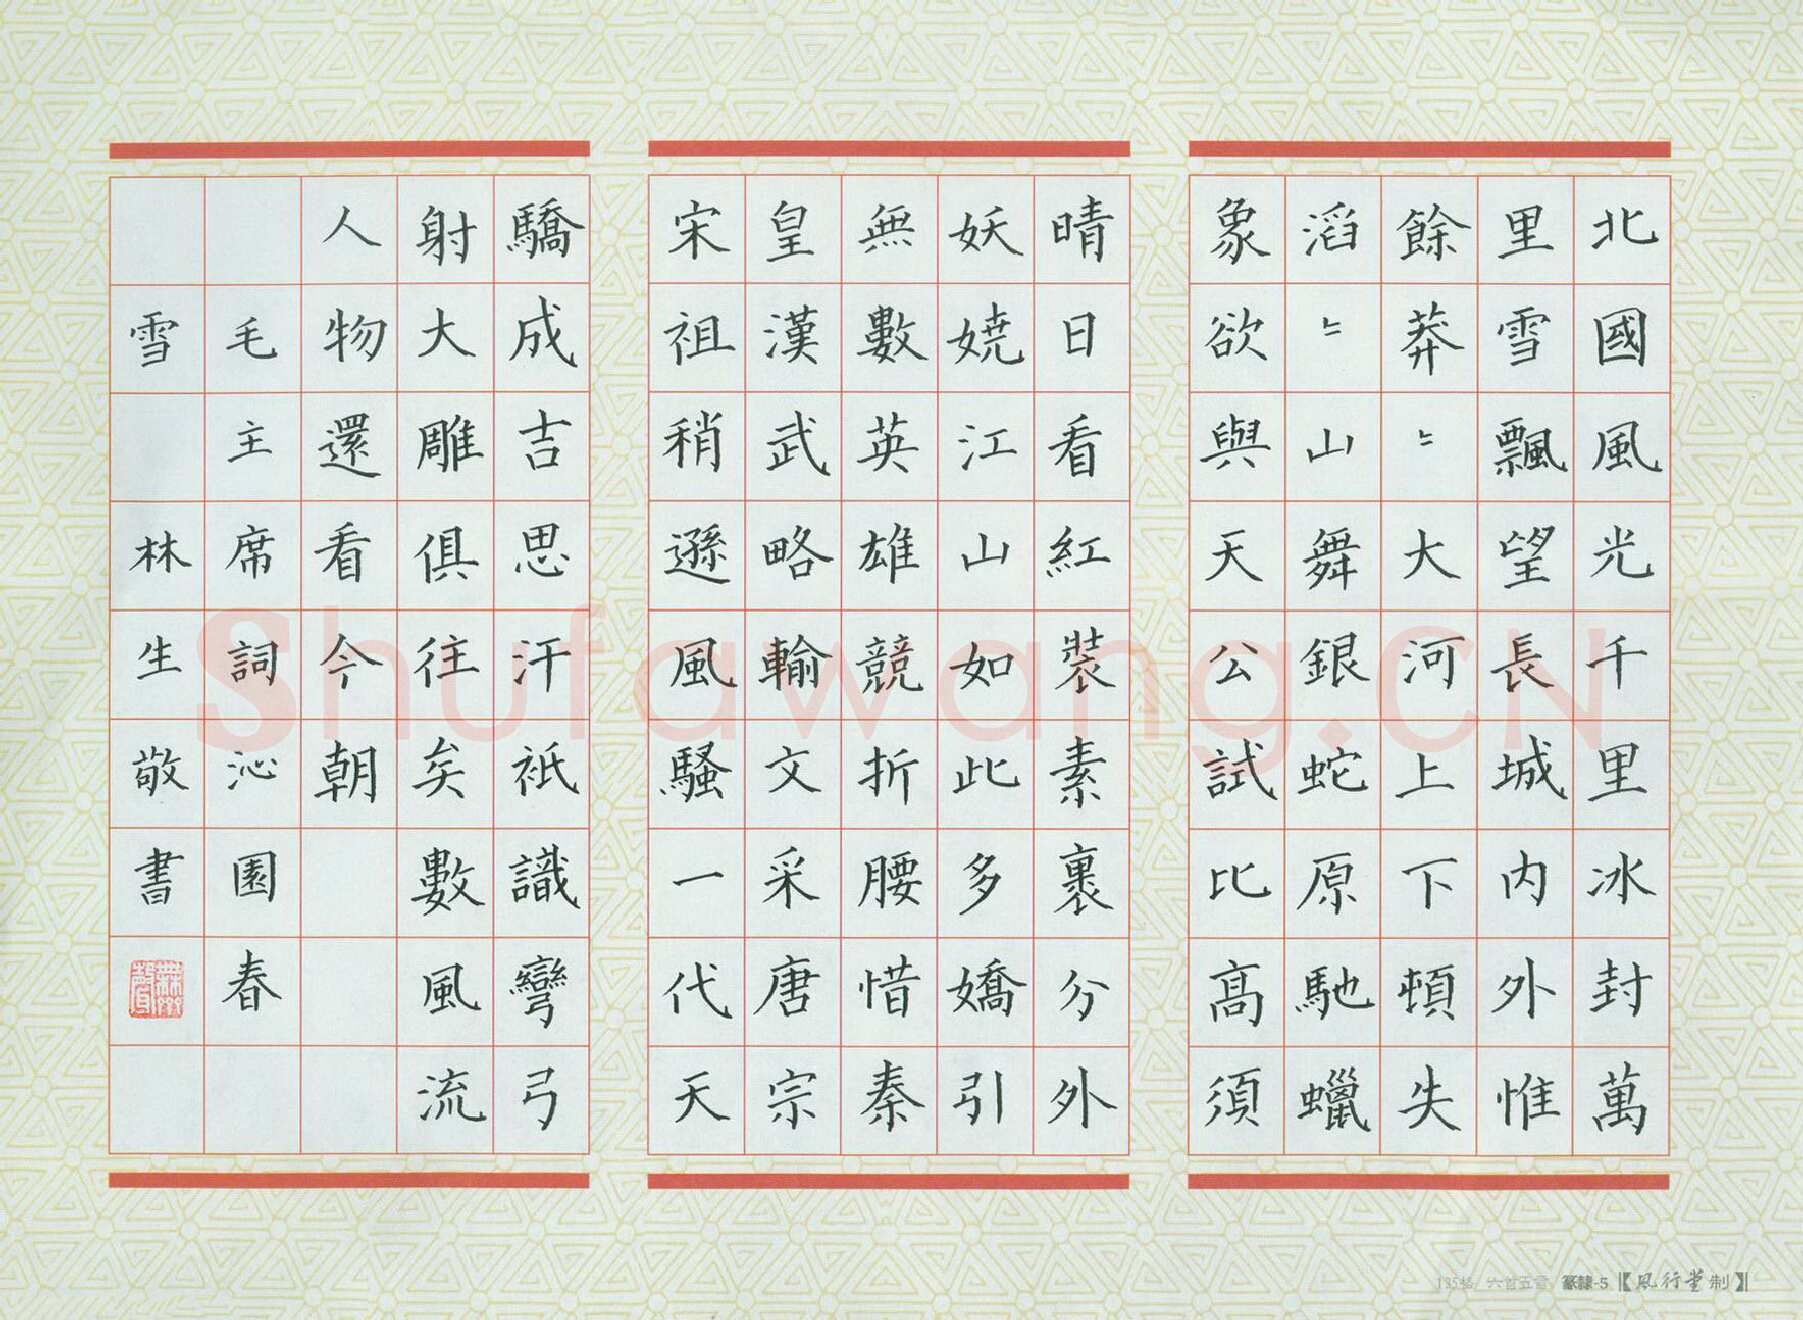 北國風光千里冰封萬
里雪飄望長城内外惟
餘莽〻大河上下頓失
滔〻山舞銀蛇原馳蠟
象欲與天公試比高須
晴日看紅裝素裹分外
妖嬈江山如此多嬌引
無數英雄競折腰惜秦
皇漢武略輸文采唐宗
宋祖稍遜風騷一代天
驕成吉思汗祇識彎弓
射大雕俱往矣數風流
人物還看今朝
毛主席詞沁園春
雪 林生敬書
Shufawang.CN
135格 六首五章 篆隸-5【風行堂制】